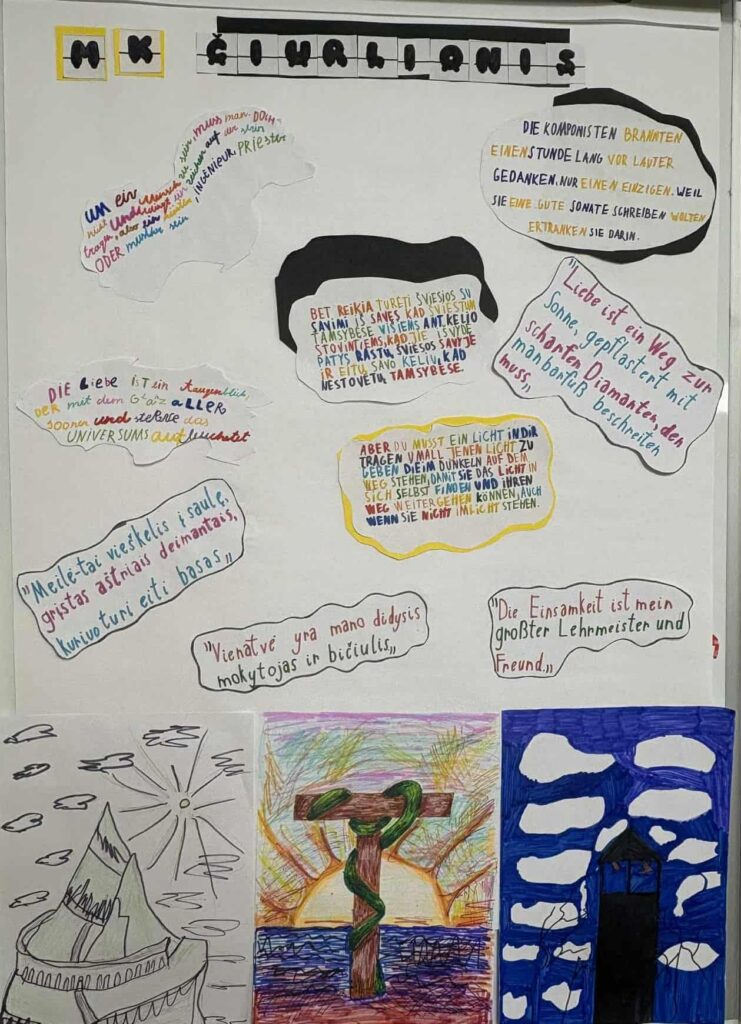 MK ČIURLIONIS
un ein
Mensch zu sein, muss man DOCH
nicht
und unbedingt ein zeichen auf der stirn
tragen, also ein
, INGENIEUR, PRIESTER
ODER sein
DIE KOMPONISTEN BRANNTEN
EINENSTUNDE LANG VOR LAUTER
GEDANKEN. NUR EINEN EINZIGEN. WEIL
SIE EINE GUTE SONATE SCHREIBEN WOLTEN
ERTRANKEN SIE DARIN.
BET REIKIA TURĖTI ŠVIESIOS SU
SAVIMI IŠ SAVĘS KAD ŠVIESTUM
TAMSYBĖSE VISIEMS ANT KELIO
STOVINTIEMS, KAD JIE IŠVYDĘ
PATYS RASTŲ ŠVIESOS SAVYJE
IR EITŲ SAVO KELIU, KAD
NESTOVĖTŲ TAMSYBĖSE.
"Liebe ist ein Weg zur
Sonne, gepflastert mit
scharfen Diamanten, den
man barfuß beschreiten
muss„
DIE Liebe IST ein Augenblick,
DER mit dem Glaz ALLER
Sonnen und sterne das
UNIVERSUMS aufleuchtet
ABER DU MUSST EIN LICHT IN DIR
TRAGEN UM ALL JENEN LICHT ZU
GEBEN DIE IM DUNKELN AUF DEM
WEG STEHEN, DAMIT SIE DAS LICHT IN
SICH SELBST FINDEN UND IHREN
WEG WEITERGEHEN KÖNNEN, AUCH
WENN SIE NICHT IM LICHT STEHEN.
"Meilė-tai vieškelis į saulę,
grįstas aštriais deimantais,
kuriuo turi eiti basas„
"Vienatvė yra mano didysis
mokytojas ir bičiulis„
"Die Einsamkeit ist mein
großter Lehrmeister und
Freund„